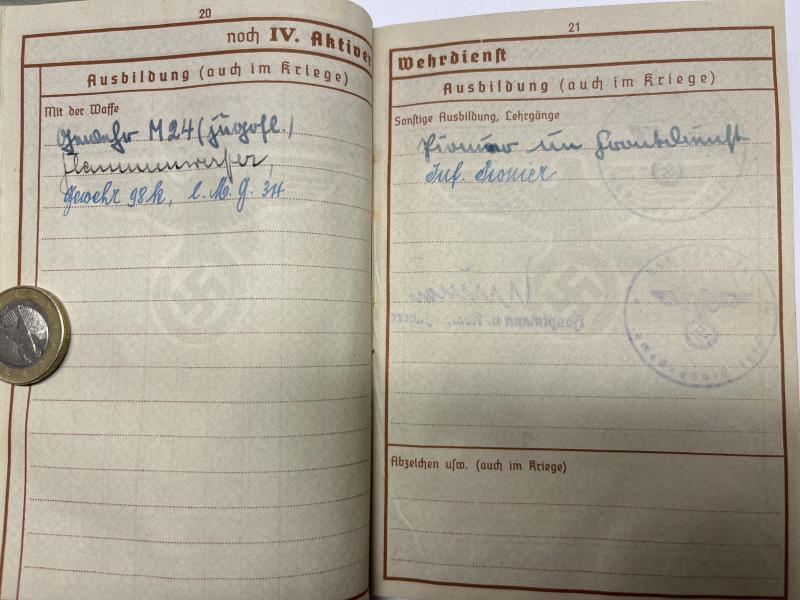 20
noch IV. Aktiver
Ausbildung (auch im Kriege)
Mit der Waffe
Gewehr M24 (jugosl.)
Flammenwerfer,
Gewehr 98k, l. M. G. 34
21
Wehrdienst
Ausbildung (auch im Kriege)
Sonstige Ausbildung, Lehrgänge
Pionier im Frontdienst
Inf. Pionier
Hauptmann u. Komp.
Abzeichen usw. (auch im Kriege)